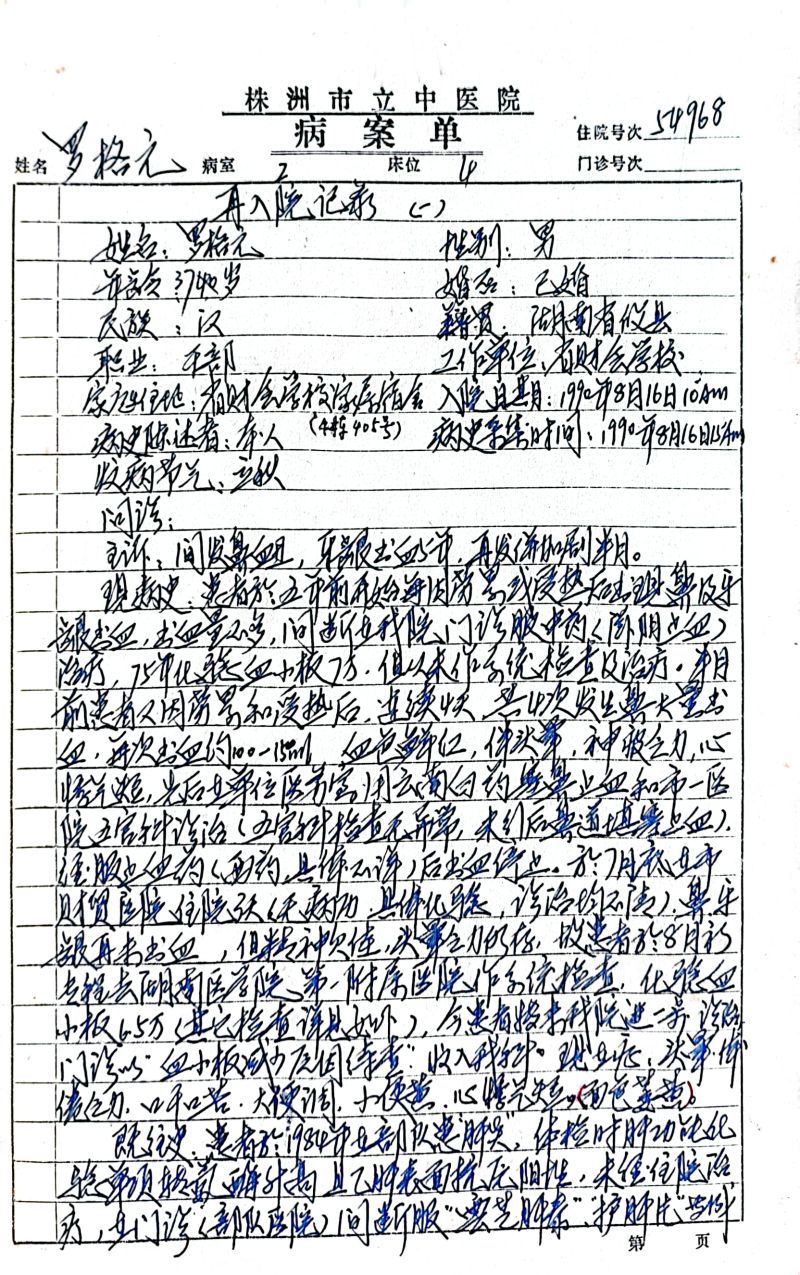 株洲市立中医院
病案单
住院号次 54968
姓名 罗格元 病室 2 床位 4 门诊号次
再入院记录 (一)
姓名：罗格元 性别：男
年龄：40岁 婚否：已婚
民族：汉 籍贯：湖南省攸县
职业：干部 工作单位：省财会学校
家庭住地：省财会学校家属宿舍 入院日期：1990年8月16日10Am
(4栋405号)
病史陈述者：本人 病史采集时间：1990年8月16日Am
发病节气：立秋
问诊：
主诉：间发鼻血，牙龈出血5年，再发併加剧半月。
现病史：患者於五年前开始每因劳累或受热后出现鼻及牙
龈出血，出血量不多，间断在我院门诊服中药（滋阴止血）
治疗，75年化验血小板7万，但以未作系统检查及治疗。半月
前患者又因劳累和受热后，连续 天共4次发生鼻大量出
血，每次出血约100-150ml 血色鲜红，伴头晕，神疲乏力，心
悸气短，先后在单位医务室用云南白药塞鼻止血和市一医
院五官科诊治（五官科检查无异常，未行后鼻道填塞止血）.
经服止血药（西药，具体不详）后出血停止。於7月底在市
财贸医院住院 天（ 病历，具体化验，诊治均不清）.鼻牙
龈再未出血，但精神欠佳，头晕乏力仍存，故患者於8月初
去湖南医学院第一附属医院作系统检查，化验血
小板6.5万（其它检查详见如外），今患者特来我院进一步诊治
门诊以“血小板减少原因待查”收入我科。现在症：头晕体
倦乏力，口干口苦，大便调，小便黄，心悸气短。(面色萎黄)。
既往史：患者於1984年在部队患“肺炎”，体检时肝功能化
验单项转氨酶升高且乙肝表面抗原阳性，未经住院治
疗，在门诊（部队医院）间断服“云芝肝泰”、“护肝片”
第 页